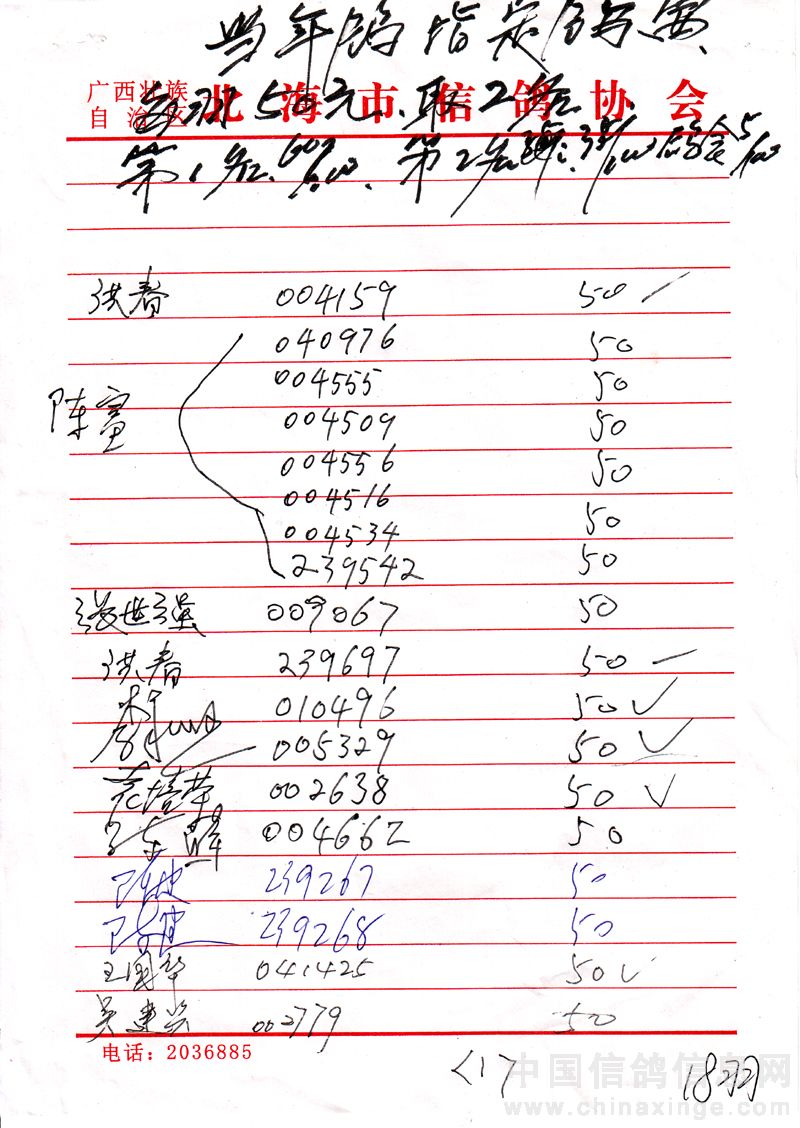 当年鸽指定鸽赛
广西壮族
自治区
北海市信鸽协会
每羽50元、取2名.
第1名、60%、第2名 35% 鸽会5%
洪春 004159 50
040976 50
004555 50
陈富 004509 50
004556 50
004516
004534 50
239542 50
张世强 009067 50
洪春 239697 50
010496 50✓
005329 50✓
范培荣 002638 50✓
004662 50
陈波 239267 50
陈波 239268 50
王国华 041425 50✓
吴建兴 002779 50
电话：2036885
<1> 18羽
中国信鸽信息网
www.chinaxinge.com